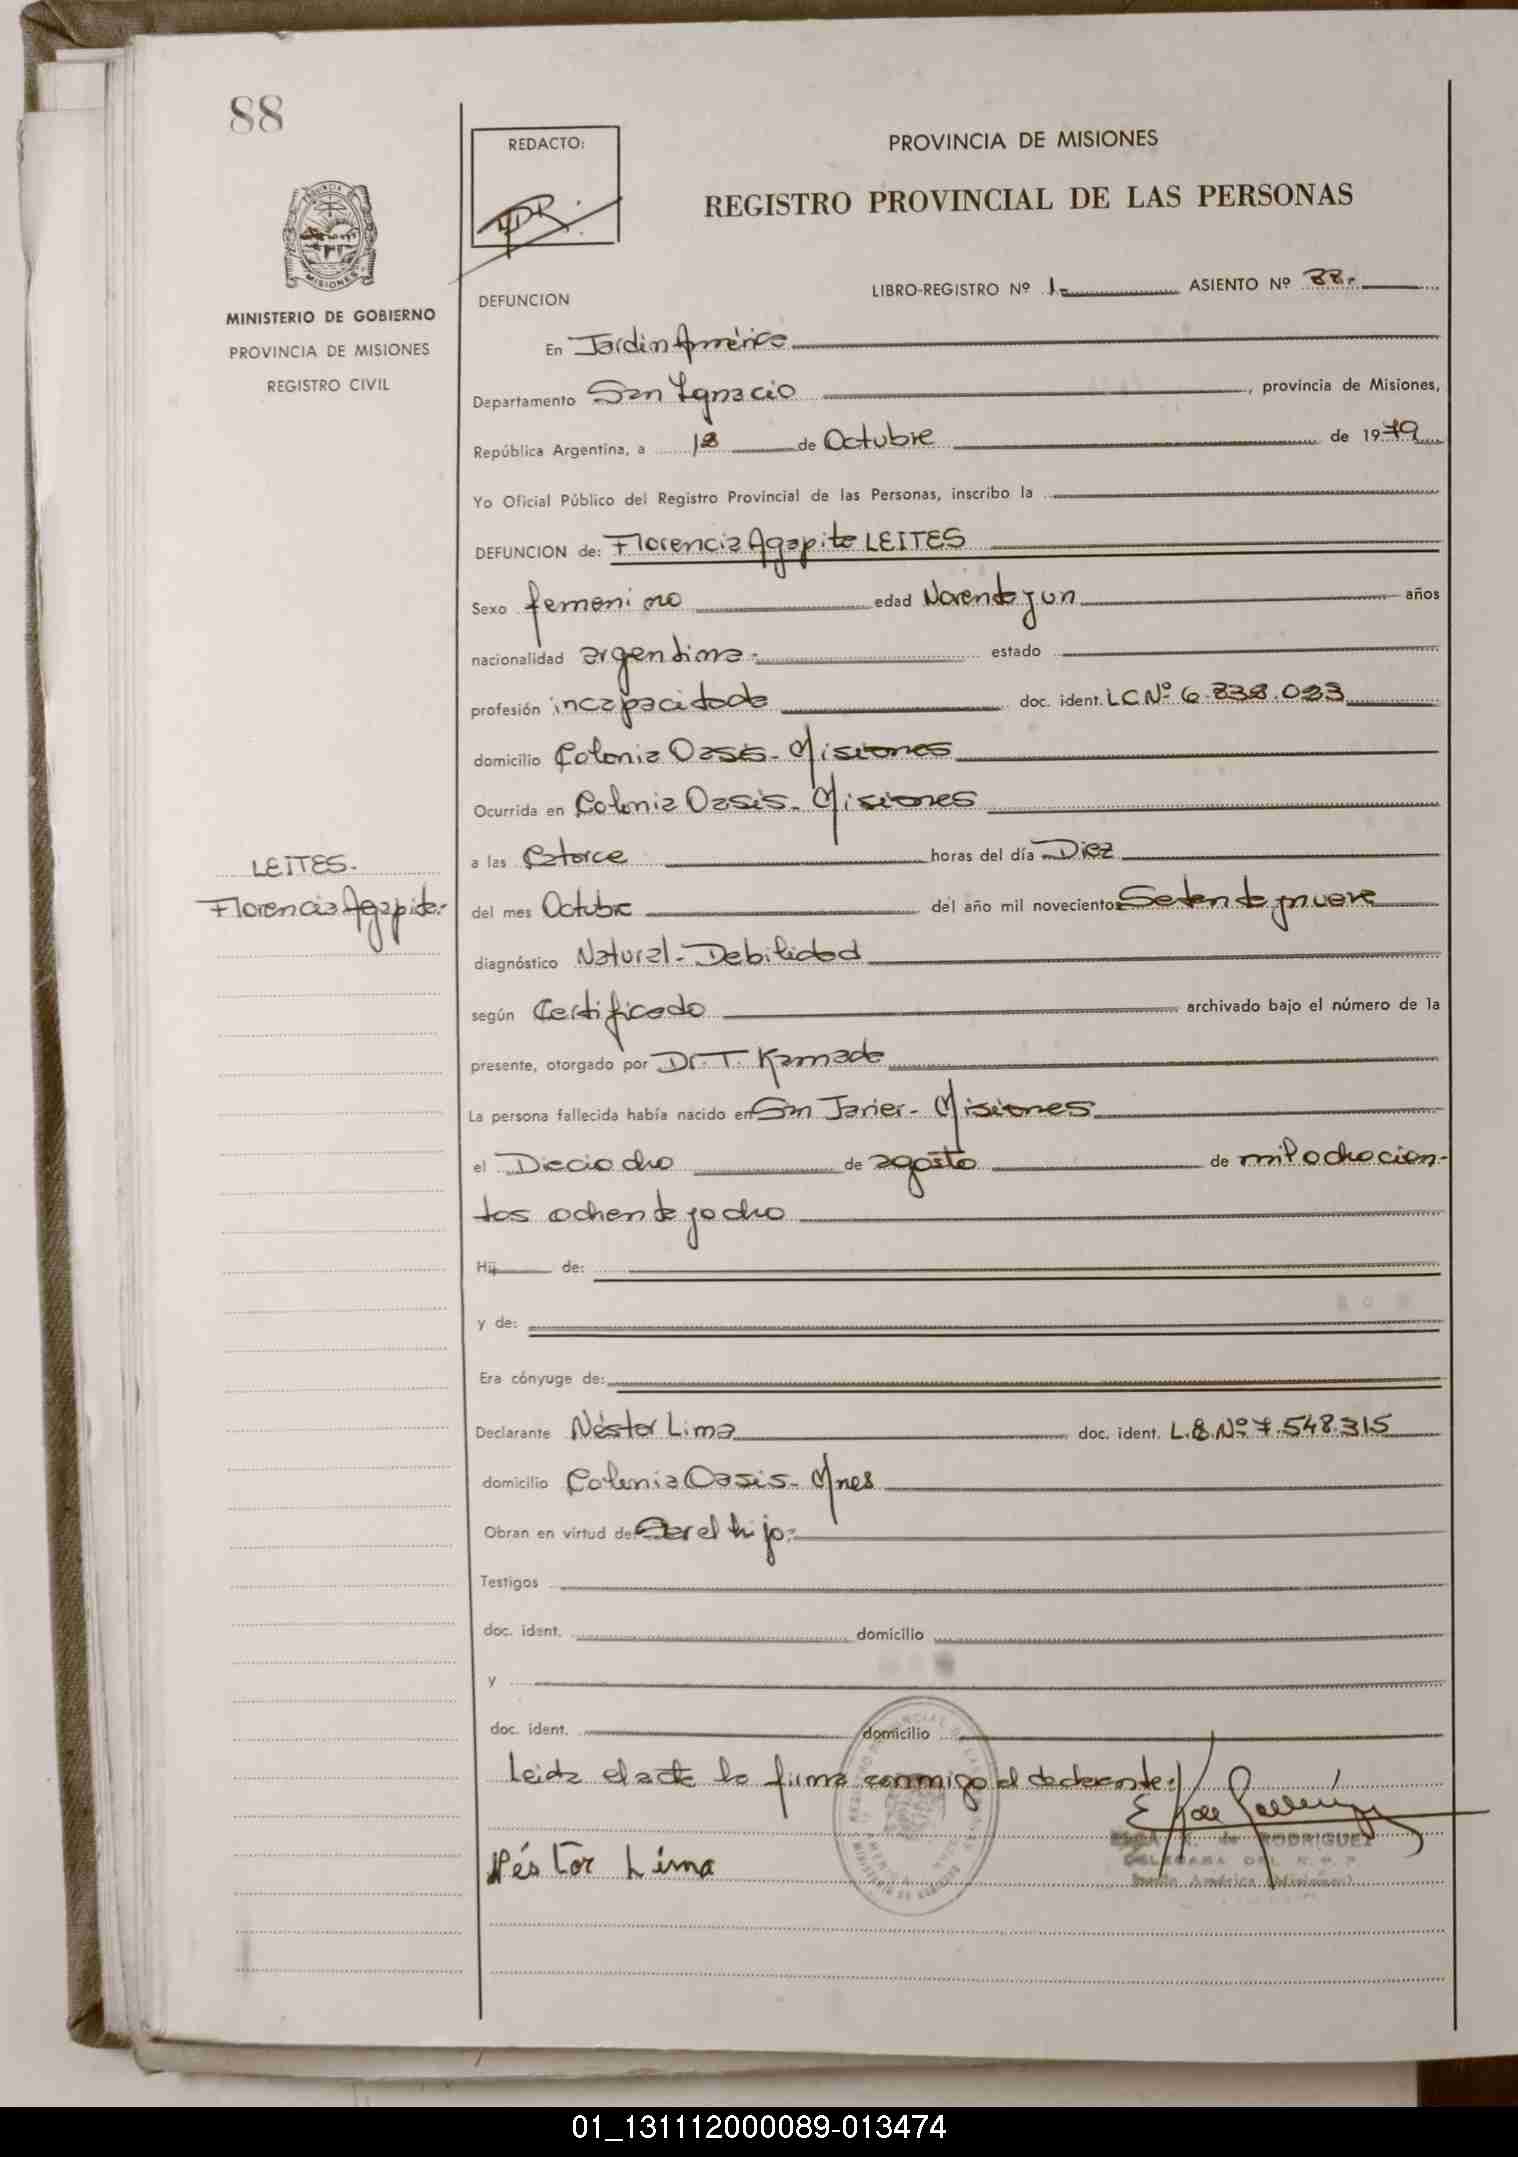 88
REDACTO:
PROVINCIA DE MISIONES
REGISTRO PROVINCIAL DE LAS PERSONAS
MISIONES
MINISTERIO DE GOBIERNO
PROVINCIA DE MISIONES
REGISTRO CIVIL
DEFUNCION
LIBRO-REGISTRO Nº 1- ASIENTO Nº 88-
En Jardín América
Departamento San Ignacio, provincia de Misiones,
República Argentina, a 18 de Octubre de 1979
Yo Oficial Público del Registro Provincial de las Personas, inscribo la
DEFUNCION de: Florencia Agapita LEITES
Sexo femenino edad Noventa y un años
nacionalidad argentina- estado
profesión incapacitada doc. ident. LC Nº 6.838.023
domicilio Colonia Oasis- Misiones
Ocurrida en Colonia Oasis- Misiones
a las Catorce horas del día Diez
LEITES-
Florencia Agapita-
del mes Octubre del año mil novecientos Setenta y nueve
diagnóstico Natural- Debilidad
según Certificado archivado bajo el número de la
presente, otorgado por Dr. T. Kamada
La persona fallecida había nacido en San Javier- Misiones
el Dieciocho de agosto de mil ochocien-
tos ochenta y ocho
Hij de:
y de:
Era cónyuge de:
Declarante Néstor Lima doc. ident. L.E. Nº 7.548.315
domicilio Colonia Oasis- Mnes
Obran en virtud de Ser el hijo-
Testigos
doc. ident. domicilio
y
doc. ident. domicilio
Leida el acta la firma conmigo el declarante-
Néstor Lima
de RODRIGUEZ
DELEGADA DEL R. P. P.
Jardín América (Misiones)
01_131112000089-013474